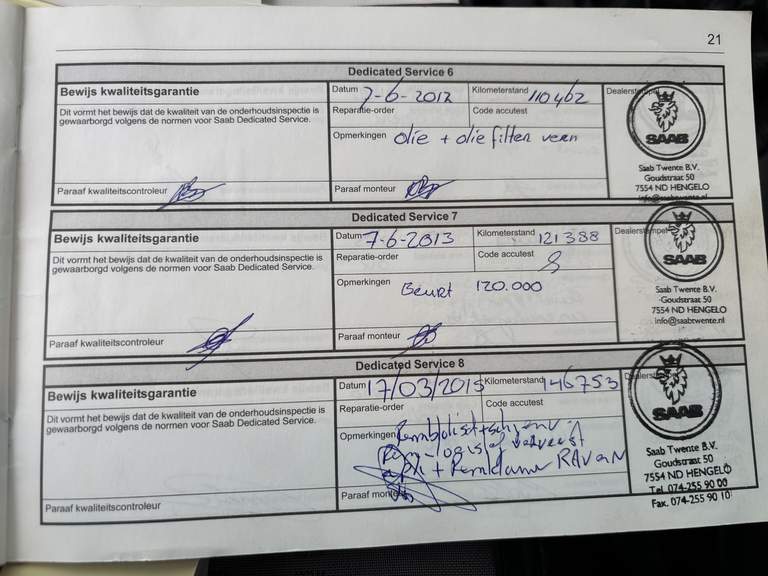 21
Dedicated Service 6
Bewijs kwaliteitsgarantie
Dit vormt het bewijs dat de kwaliteit van de onderhoudsinspectie is
gewaarborgd volgens de normen voor Saab Dedicated Service.
Paraaf kwaliteitscontroleur
Datum 7-6-2012
Kilometerstand 110462
Reparatie-order
Code accutest
Opmerkingen olie + olie filter vern
Paraaf monteur
SAAB
Saab Twente B.V.
Goudstraat 50
7554 ND HENGELO
info@saabtwente.nl
Dedicated Service 7
Bewijs kwaliteitsgarantie
Dit vormt het bewijs dat de kwaliteit van de onderhoudsinspectie is
gewaarborgd volgens de normen voor Saab Dedicated Service.
Paraaf kwaliteitscontroleur
Datum 7-6-2013
Kilometerstand 121388
Reparatie-order
Code accutest
Opmerkingen Beurt 120.000
Paraaf monteur
SAAB
Saab Twente B.V.
Goudstraat 50
7554 ND HENGELO
info@saabtwente.nl
Dedicated Service 8
Bewijs kwaliteitsgarantie
Dit vormt het bewijs dat de kwaliteit van de onderhoudsinspectie is
gewaarborgd volgens de normen voor Saab Dedicated Service.
Paraaf kwaliteitscontroleur
Datum 17/03/2015
Kilometerstand 146753
Reparatie-order
Code accutest
Opmerkingen
Paraaf monteur
SAAB
Saab Twente B.V.
Goudstraat 50
7554 ND HENGELO
Tel. 074-255 90 00
Fax. 074-255 90 10